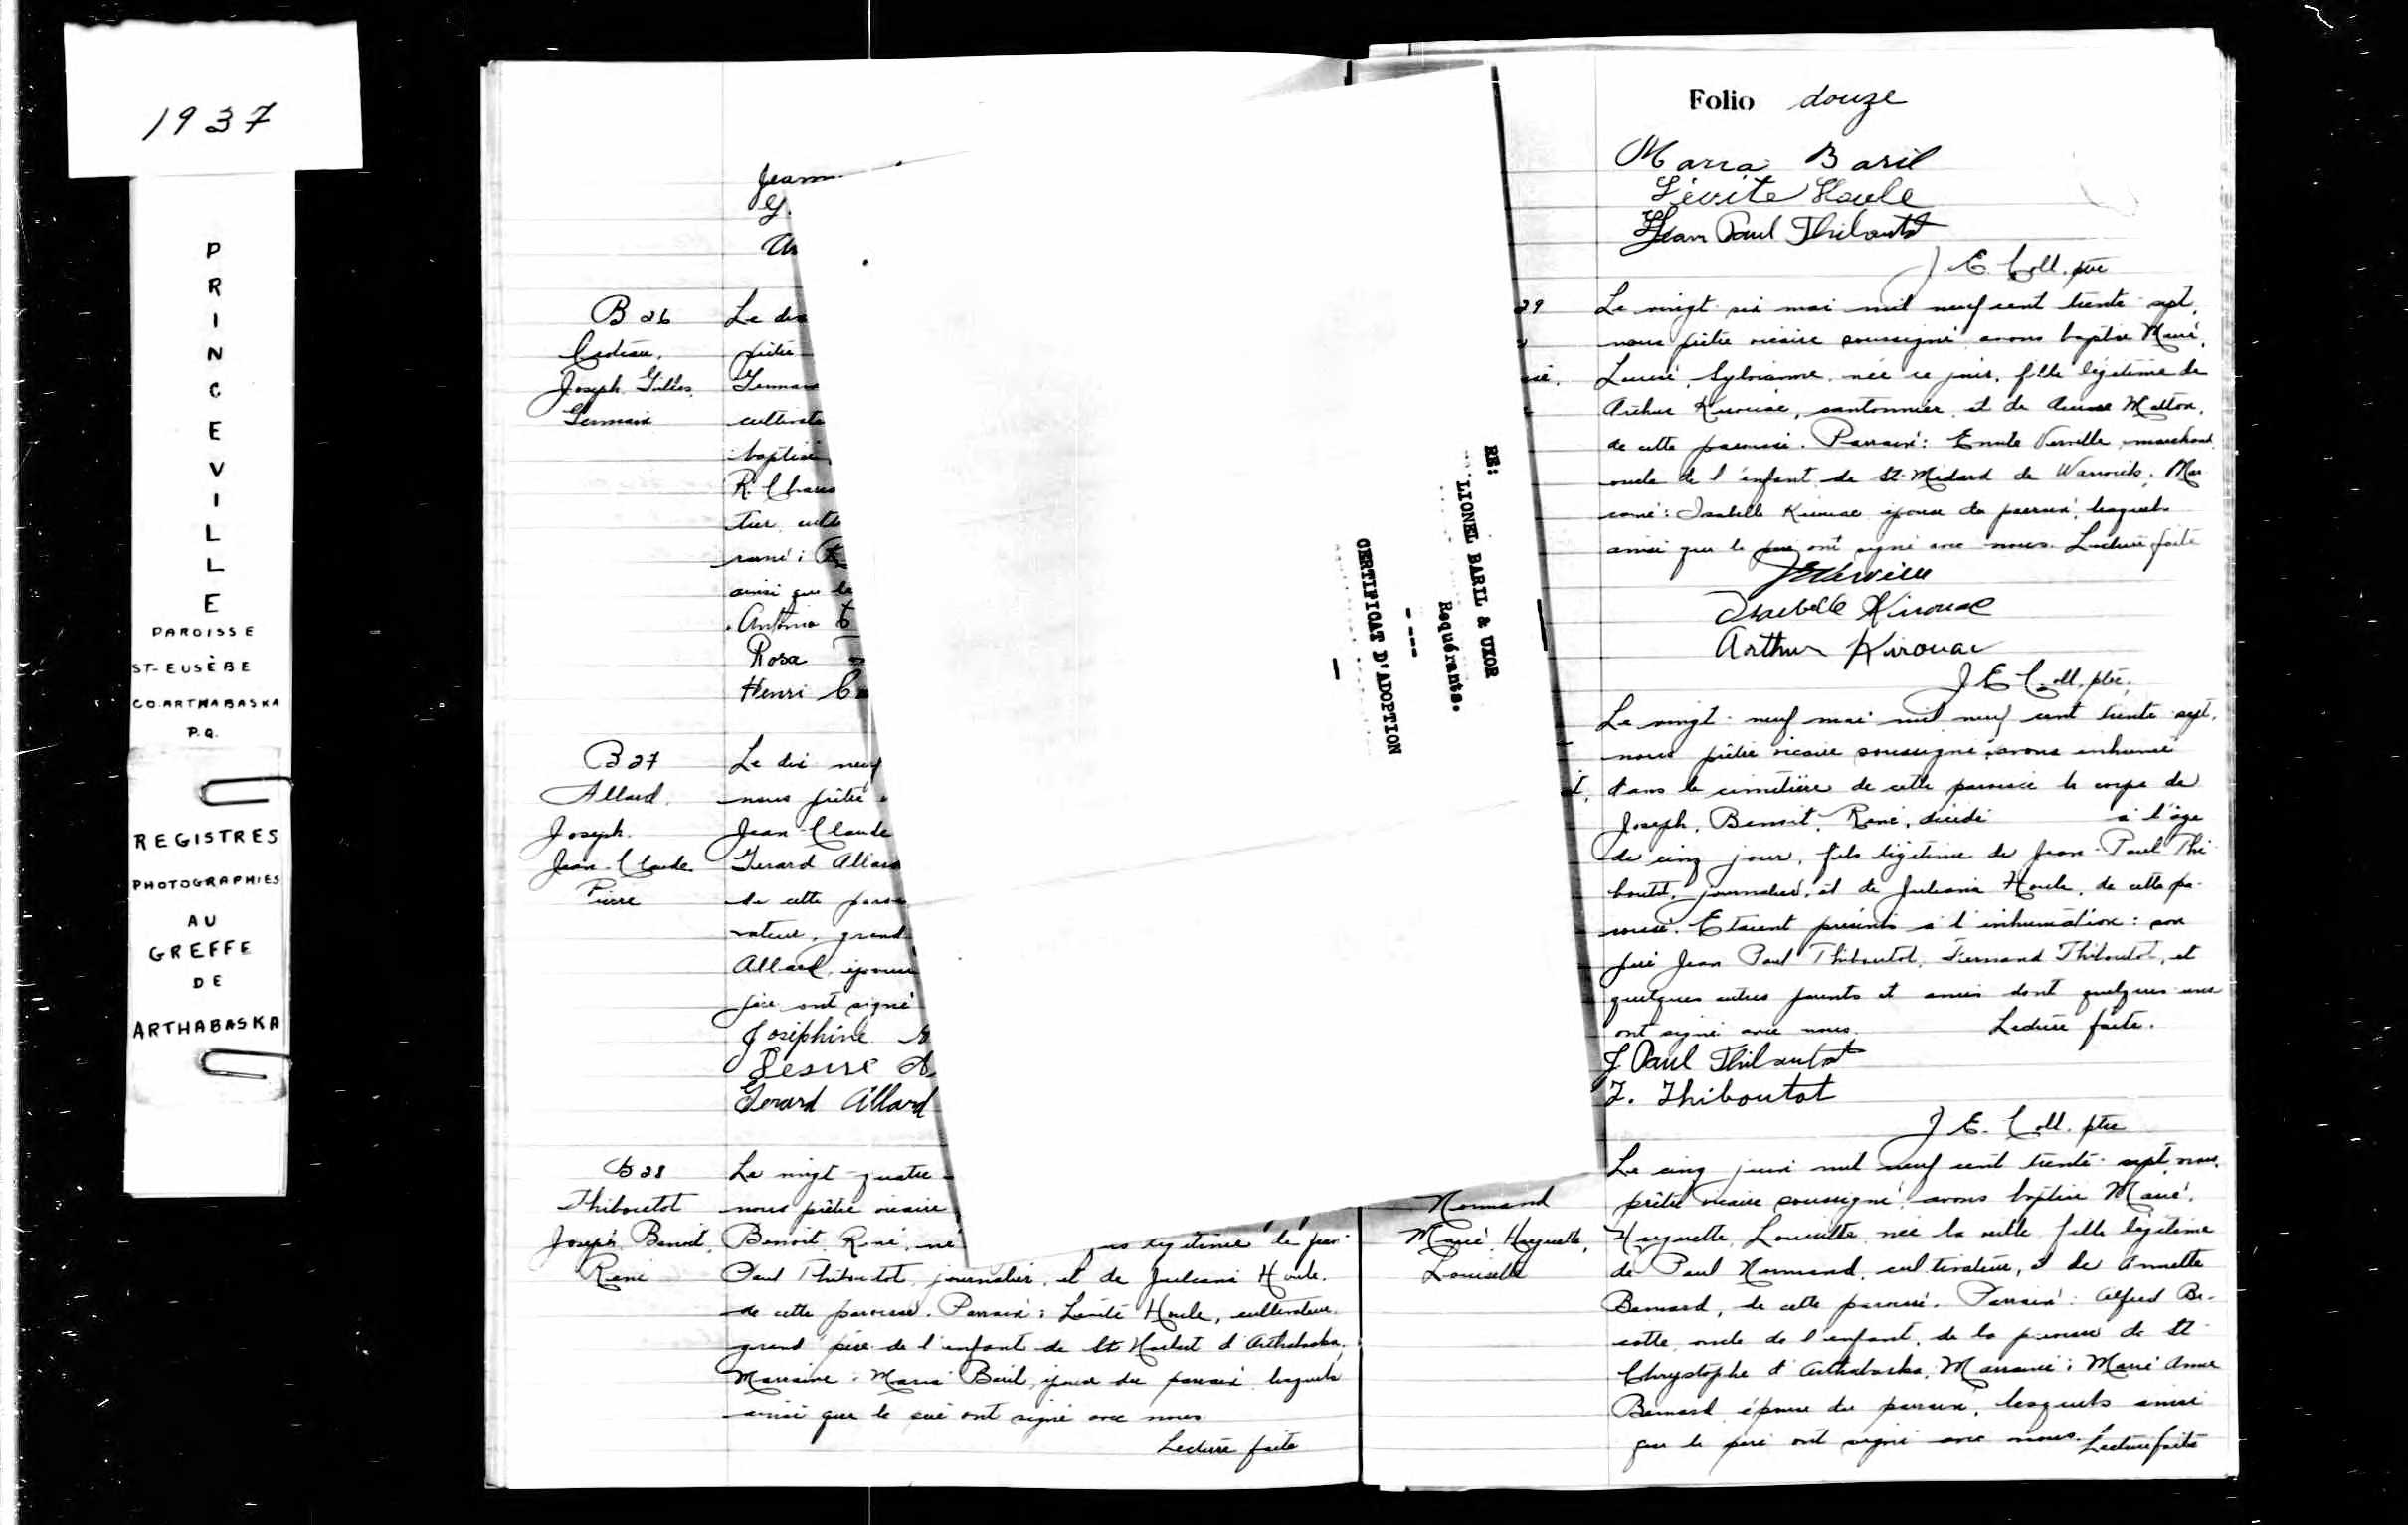 1937
PRINCEVILLE
PAROISSE
ST-EUSÈBE
CO. ARTHABASKA
P.Q.
REGISTRES
PHOTOGRAPHIES
AU
GREFFE
DE
ARTHABASKA
B 26
Joseph Gilles
Germain
Le dix
prêtre
Germain
baptisé
ainsi que le
Antonio
Rosa
Henri
B 27
Allard.
Joseph.
Jean-Claude
Pierre
Le dix neuf
nous prêtre
Jean-Claude
Gerard Allard
de cette
Allard, épouse
père ont signé
Joséphine
Desire A
Gerard Allard
B 28
Thiboutot
Joseph. Benoit.
René
Le vingt-quatre
nous prêtre vicaire
Benoit. René. né légitime de Jean-
Paul Thiboutot, journalier, et de Juliana Houle.
de cette paroisse. Parrain: Lévite Houle, cultivateur.
grand père de l'enfant de St Norbert d'Arthabaska.
Marraine: Maria Baril, épouse du parrain, lesquels
ainsi que le père ont signé avec nous
Lecture faite
RE:
LIONEL BARIL & UXOR
Requérants.
CERTIFICAT D'ADOPTION
Folio douze
Maria Baril
Lévite Houle
Jean Paul Thiboutot
J. E. Coll. ptre
29
Le vingt-six mai mil neuf cent trente-sept,
nous prêtre vicaire soussigné avons baptisé Marie,
née ce jour, fille légitime de
Arthur Kirouac, cantonnier, et de
de cette paroisse. Parrain: Emile Verville, marchand
oncle de l'enfant de St-Médard de Warwick. Mar
raine: Isabelle Kirouac épouse du parrain, lesquels
ainsi que le père ont signé avec nous. Lecture faite
Isabelle Kirouac
Arthur Kirouac
J. E. Coll. ptre.
Le vingt-neuf mai mil neuf cent trente sept.
nous prêtre vicaire soussigné avons inhumé
dans le cimetière de cette paroisse le corps de
Joseph, Benoit, René, décédé à l'âge
de cinq jour, fils légitime de Jean-Paul Thi
boutot, journalier, et de Juliana Houle, de cette pa-
roisse. Etaient présents à l'inhumation: son
père Jean Paul Thiboutot, Fernand Thiboutot, et
quelques autres parents et amis dont quelques uns
ont signé avec nous. Lecture faite.
J. Paul Thiboutot
F. Thiboutot
J. E. Coll. ptre
Normand
Marie. Huguette,
Louisette
Le cinq juin mil neuf cent trente-sept, nous,
prêtre vicaire soussigné avons baptisé Marie.
Huguette, Louisette, née la veille, fille légitime
de Paul Normand, cultivateur, et de Annette
Bernard, de cette paroisse. Parrain: Alfred Be-
cotte oncle de l'enfant, de la paroisse de St-
Chrystophe d'Arthabaska. Marraine: Marie Anne
Bernard épouse du parrain, lesquels ainsi
que le père ont signé avec nous. Lecture faite